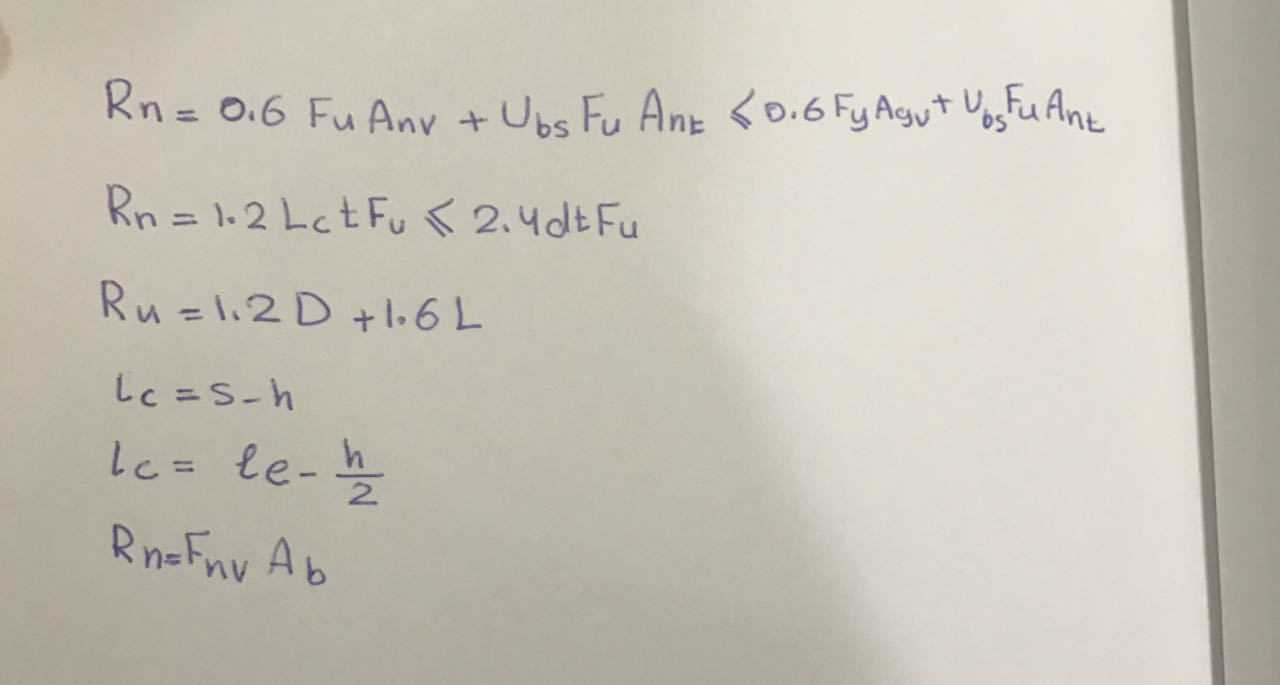 Rn = 0.6 Fu Anv + Ubs Fu Ant ⩽ 0.6 Fy Agv + Ubs Fu Ant
Rn = 1.2 Lc t Fu ⩽ 2.4 dt Fu
Ru = 1.2 D + 1.6 L
Lc = S - h
lc = le - h/2
Rn = Fnv Ab